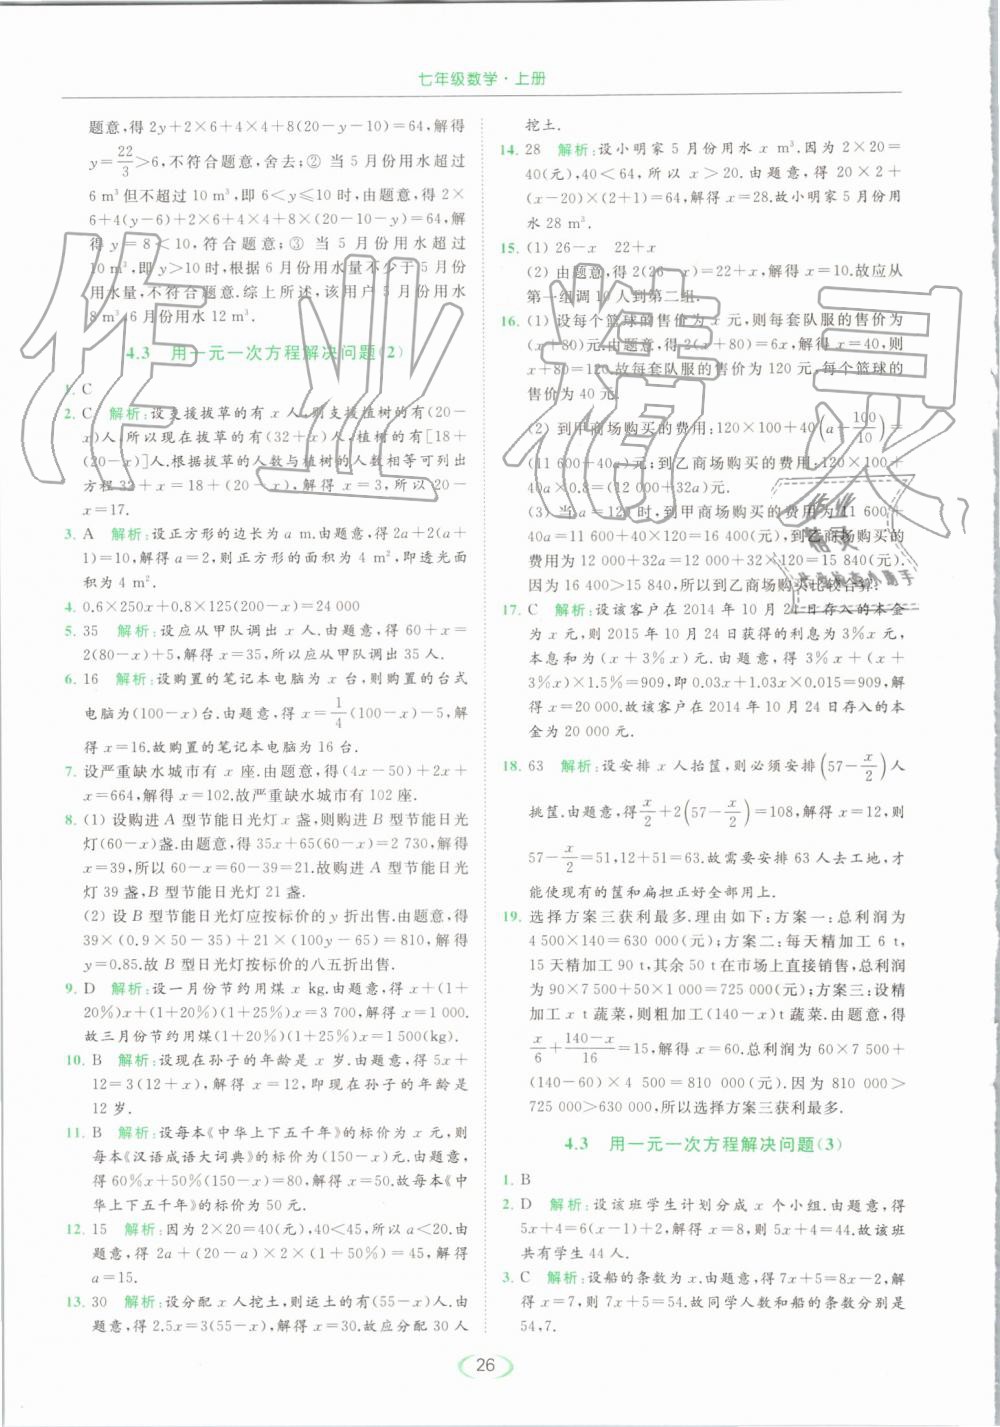 七年级数学·上册
题意,得 2y+2×6+4×4+8(20-y-10)=64,解得
y=22/3>6,不符合题意,舍去;② 当 5 月份用水超过
6 m³但不超过 10 m³,即 6<y≤10时,由题意,得 2×
6+4(y-6)+2×6+4×(20-10-y)=64,解
得 y=8<10,符合题意;③ 当 5 月份用水超过
10 m³,即 y>10时,根据 6 月份用水量不少于 5 月份
用水量,不符合题意.综上所述,该用户 5 月份用水
8 m³,6 月份用水 12 m³.
4.3 用一元一次方程解决问题(2)
1. C
2. C 解析:设支援拔草的有 x 人,则支援植树的有(20-
x)人,所以现在拔草的有(32+x)人,植树的有[18+
(20-x)]人.根据拔草的人数与植树的人数相等可列出
方程 32+x=18+(20-x),解得 x=3.则 20-x=
17.
3. A 解析:设正方形的边长为 a m.由题意,得 2a+2(a+
1)=10,解得 a=2,则正方形的面积为 4 m²,即透光面
积为 4 m².
4. 0.6×250x+0.8×125(250-x)=24 000
5. 35 解析:设应从甲队调出 x 人.由题意,得 60+x=
2(80-x)+5,解得 x=35,所以应从甲队调出 35 人.
6. 16 解析:设购置的笔记本电脑为 x 台,则购置的台式
电脑为(100-x)台.由题意,得 x=1/4(100-x)-5,解
得 x=16.故购置的笔记本电脑为 16 台.
7. 设严重缺水城市有 x 座.由题意,得(4x-50)+2x+
x=664,解得 x=102.故严重缺水城市有 102 座.
8. (1) 设购进 A 型节能日光灯 x 盏,则购进 B 型节能日光
灯(60-x)盏.由题意,得 35x+65(60-x)=2 730,解得
x=39,所以 60-x=60-39=21.故购进 A 型节能日光
灯 39 盏,B 型节能日光灯 21 盏.
(2) 设 B 型节能日光灯应按标价的 y 折出售.由题意,得
39×(0.9×50-35)+21×(100y-65)=810,解得
y=0.85.故 B 型节能日光灯按标价的八五折出售.
9. D 解析:设一月份节约用煤 x kg.由题意,得 x+(1+
20%)x+(1+20%)(1+25%)x=3 700,解得 x=1 000.
故三月份节约用煤(1+20%)(1+25%)x=1 500(kg).
10. B 解析:设现在孙子的年龄是 x 岁.由题意,得 5x+
12=3(12+x),解得 x=12,即现在孙子的年龄是
12 岁.
11. B 解析:设每本《中华上下五千年》的标价为 x 元,则
每本《汉语成语大词典》的标价为(150-x)元.由题意,
得 60%x+50%(150-x)=80,解得 x=50.故每本《中
华上下五千年》的标价为 50 元.
12. 15 解析:因为 2×20=40(元),40<45,所以 a<20.由
题意,得 2a+(20-a)×2×(1+50%)=45,解得
a=15.
13. 30 解析:设分配 x 人挖土,则运土的有(55-x)人.由
题意,得 2.5x=3(55-x),解得 x=30.故应分配 30 人
挖土.
14. 28 解析:设小明家 5 月份用水 x m³.因为 2×20=
40(元),40<64,所以 x>20.由题意,得 20×2+
(x-20)×(2+1)=64,解得 x=28.故小明家 5 月份用
水 28 m³.
15. (1) 26-x 22+x
(2) 由题意,得 2(26-x)=22+x,解得 x=10.故应从
第一组调 10 人到第二组.
16. (1) 设每个篮球的售价为 x 元,则每套队服的售价为
(x+80)元.由题意,得 2(x+80)=6x,解得 x=40,则
x+80=120.故每套队服的售价为 120 元,每个篮球的
售价为 40 元.
(2) 到甲商场购买的费用:120×100+40(a-100/10)=
(11 600+40a)(元);到乙商场购买的费用:120×100+
40a×0.8=(12 000+32a)(元).
(3) 当 a=120 时,到甲商场购买的费用为 11 600+
40a=11 600+40×120=16 400(元),到乙商场购买的
费用为 12 000+32a=12 000+32×120=15 840(元).
因为 16 400>15 840,所以到乙商场购买比较合算.
17. C 解析:设该客户在 2014 年 10 月 24 日存入的本金
为 x 元,则 2015 年 10 月 24 日获得的利息为 3%x 元,
本息和为(x+3%x)元.由题意,得 3%x+(x+
3%x)×1.5%=909,即 0.03x+1.03x×0.015=909,解得
x=20 000.故该客户在 2014 年 10 月 24 日存入的本
金为 20 000 元.
18. 63 解析:设安排 x 人抬筐,则必须安排(57-x/2)人
挑筐.由题意,得 x/2+2(57-x/2)=108,解得 x=12,则
57-x/2=51,12+51=63.故需要安排 63 人去工地,才
能使现有的筐和扁担正好全部用上.
19. 选择方案三获利最多.理由如下:方案一:总利润为
4 500×140=630 000(元);方案二:每天精加工 6 t,
15 天精加工 90 t,其余 50 t 在市场上直接销售,总利润
为 7 500×90+50×1 000=725 000(元);方案三:设精
加工 x t 蔬菜,则粗加工(140-x) t 蔬菜.由题意,得
x/6+(140-x)/16=15,解得 x=60.总利润为 60×7 500+
(140-60)×4 500=810 000(元).因为 810 000>
725 000>630 000,所以选择方案三获利最多.
4.3 用一元一次方程解决问题(3)
1. B
2. D 解析:设该班学生计划分成 x 个小组.由题意,得
5x+4=6(x-1)+2,解得 x=8,则 5x+4=44.故该班
共有学生 44 人.
3. C 解析:设船的条数为 x.由题意,得 7x+5=8x-2,解
得 x=7,则 7x+5=54.故同学人数和船的条数分别是
54,7.
26
作业精灵